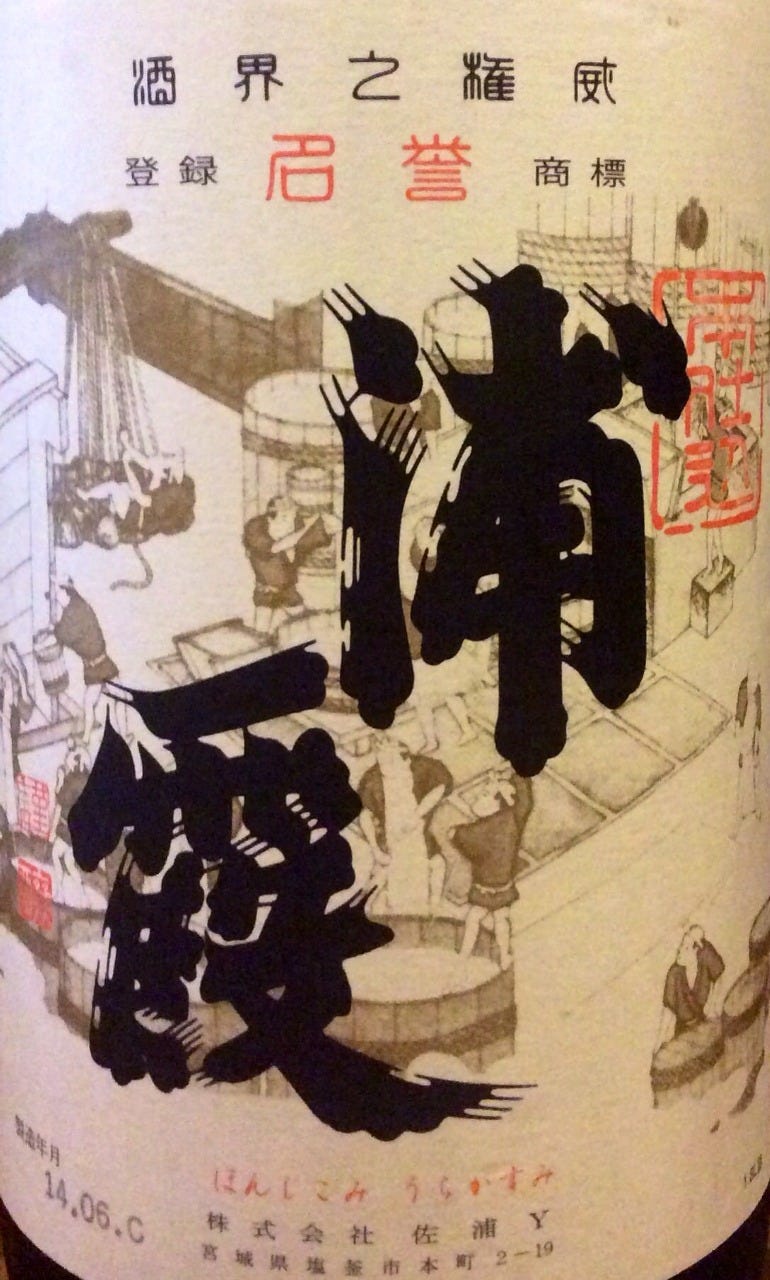 酒界之権威
登録 名誉 商標
浦霞
本仕込
謹醸
製造年月
14.06.C
ほんじこみ うらかすみ
株式会社 佐浦 Y
宮城県塩釜市本町2-19